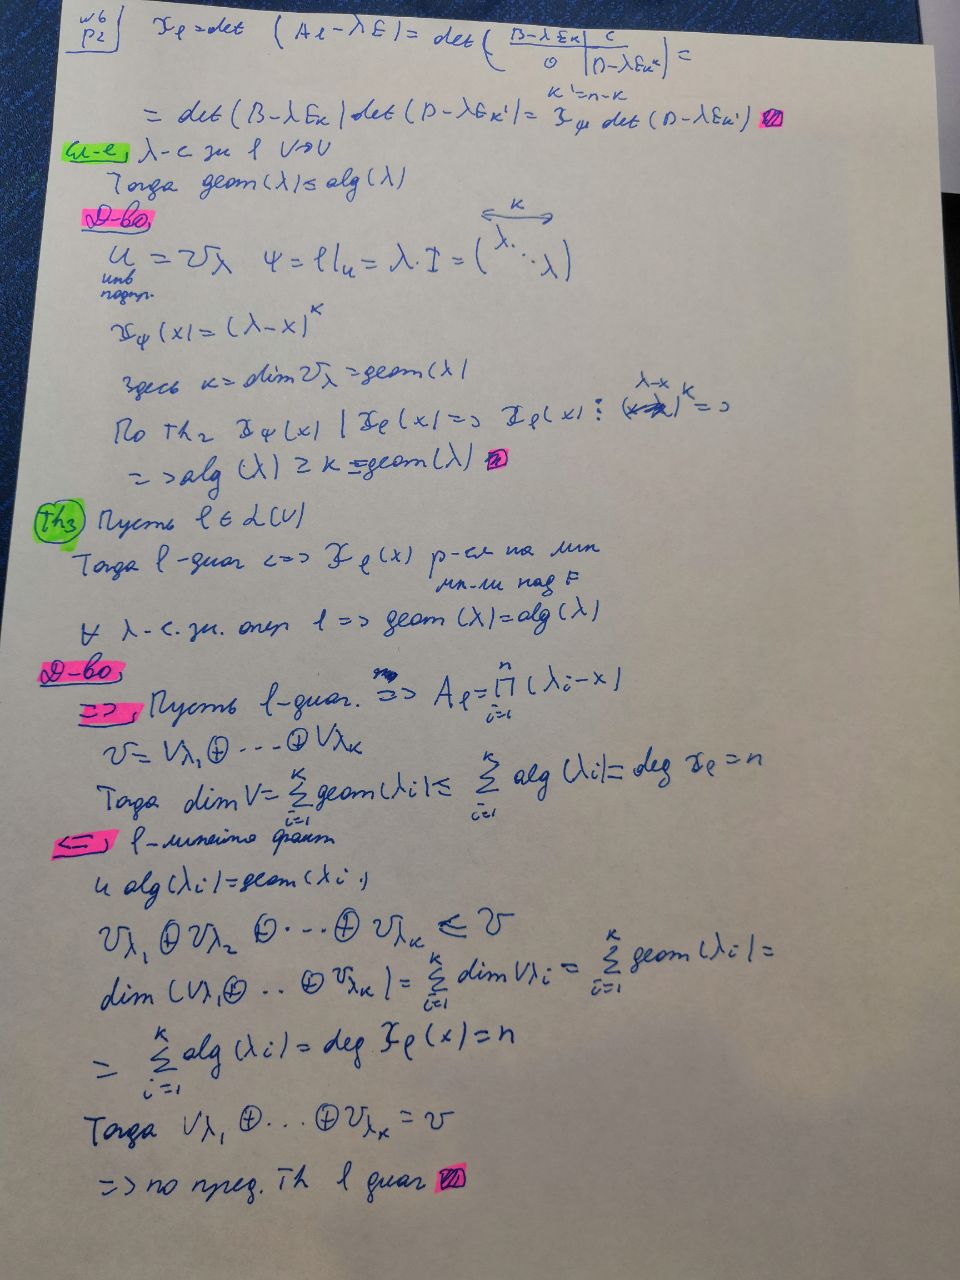 №6
P2
χφ = det (Aφ - λE) = det ( B-λEk | C
0 | D-λEk' ) =
k' = n-k
= det (B-λEk) det (D-λEk') = χψ det (D-λEk')
Сл-е, λ - с. зн φ V→V
Тогда geom(λ) ≤ alg(λ)
Д-во,
k
U = Vλ ψ = φ|u = λ·I = (λ ⋱ λ)
инв
подпр.
χψ(x) = (λ-x)^k
Здесь k = dim Vλ = geom(λ)
λ-x
По Th2 χψ(x) | χφ(x) => χφ(x) ⋮ ( )^k =>
=> alg (λ) ≥ k = geom(λ)
Th3 Пусть φ ∈ L(V)
Тогда φ - диаг <=> χφ(x) р-ся на лин
мн-ли над F
∀ λ - с. зн. опер φ => geom(λ) = alg(λ)
Д-во,
=>, Пусть φ - диаг. => Aφ = ∏ i=1 n (λi - x)
V = Vλ1 ⊕ ... ⊕ Vλk
Тогда dim V = Σ i=1 k geom(λi) ≤ Σ i=1 k alg(λi) = deg χφ = n
<=, φ - линейно факт
и alg(λi) = geom(λi)
Vλ1 ⊕ Vλ2 ⊕ ... ⊕ Vλk ≤ V
dim (Vλ1 ⊕ .. ⊕ Vλk) = Σ i=1 k dim Vλi = Σ i=1 k geom(λi) =
= Σ i=1 k alg(λi) = deg χφ(x) = n
Тогда Vλ1 ⊕ ... ⊕ Vλk = V
=> по пред. Th φ диаг